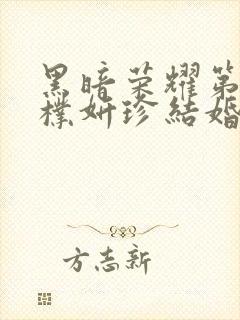 黑暗荣耀第
樸妍珍結婚
方志新